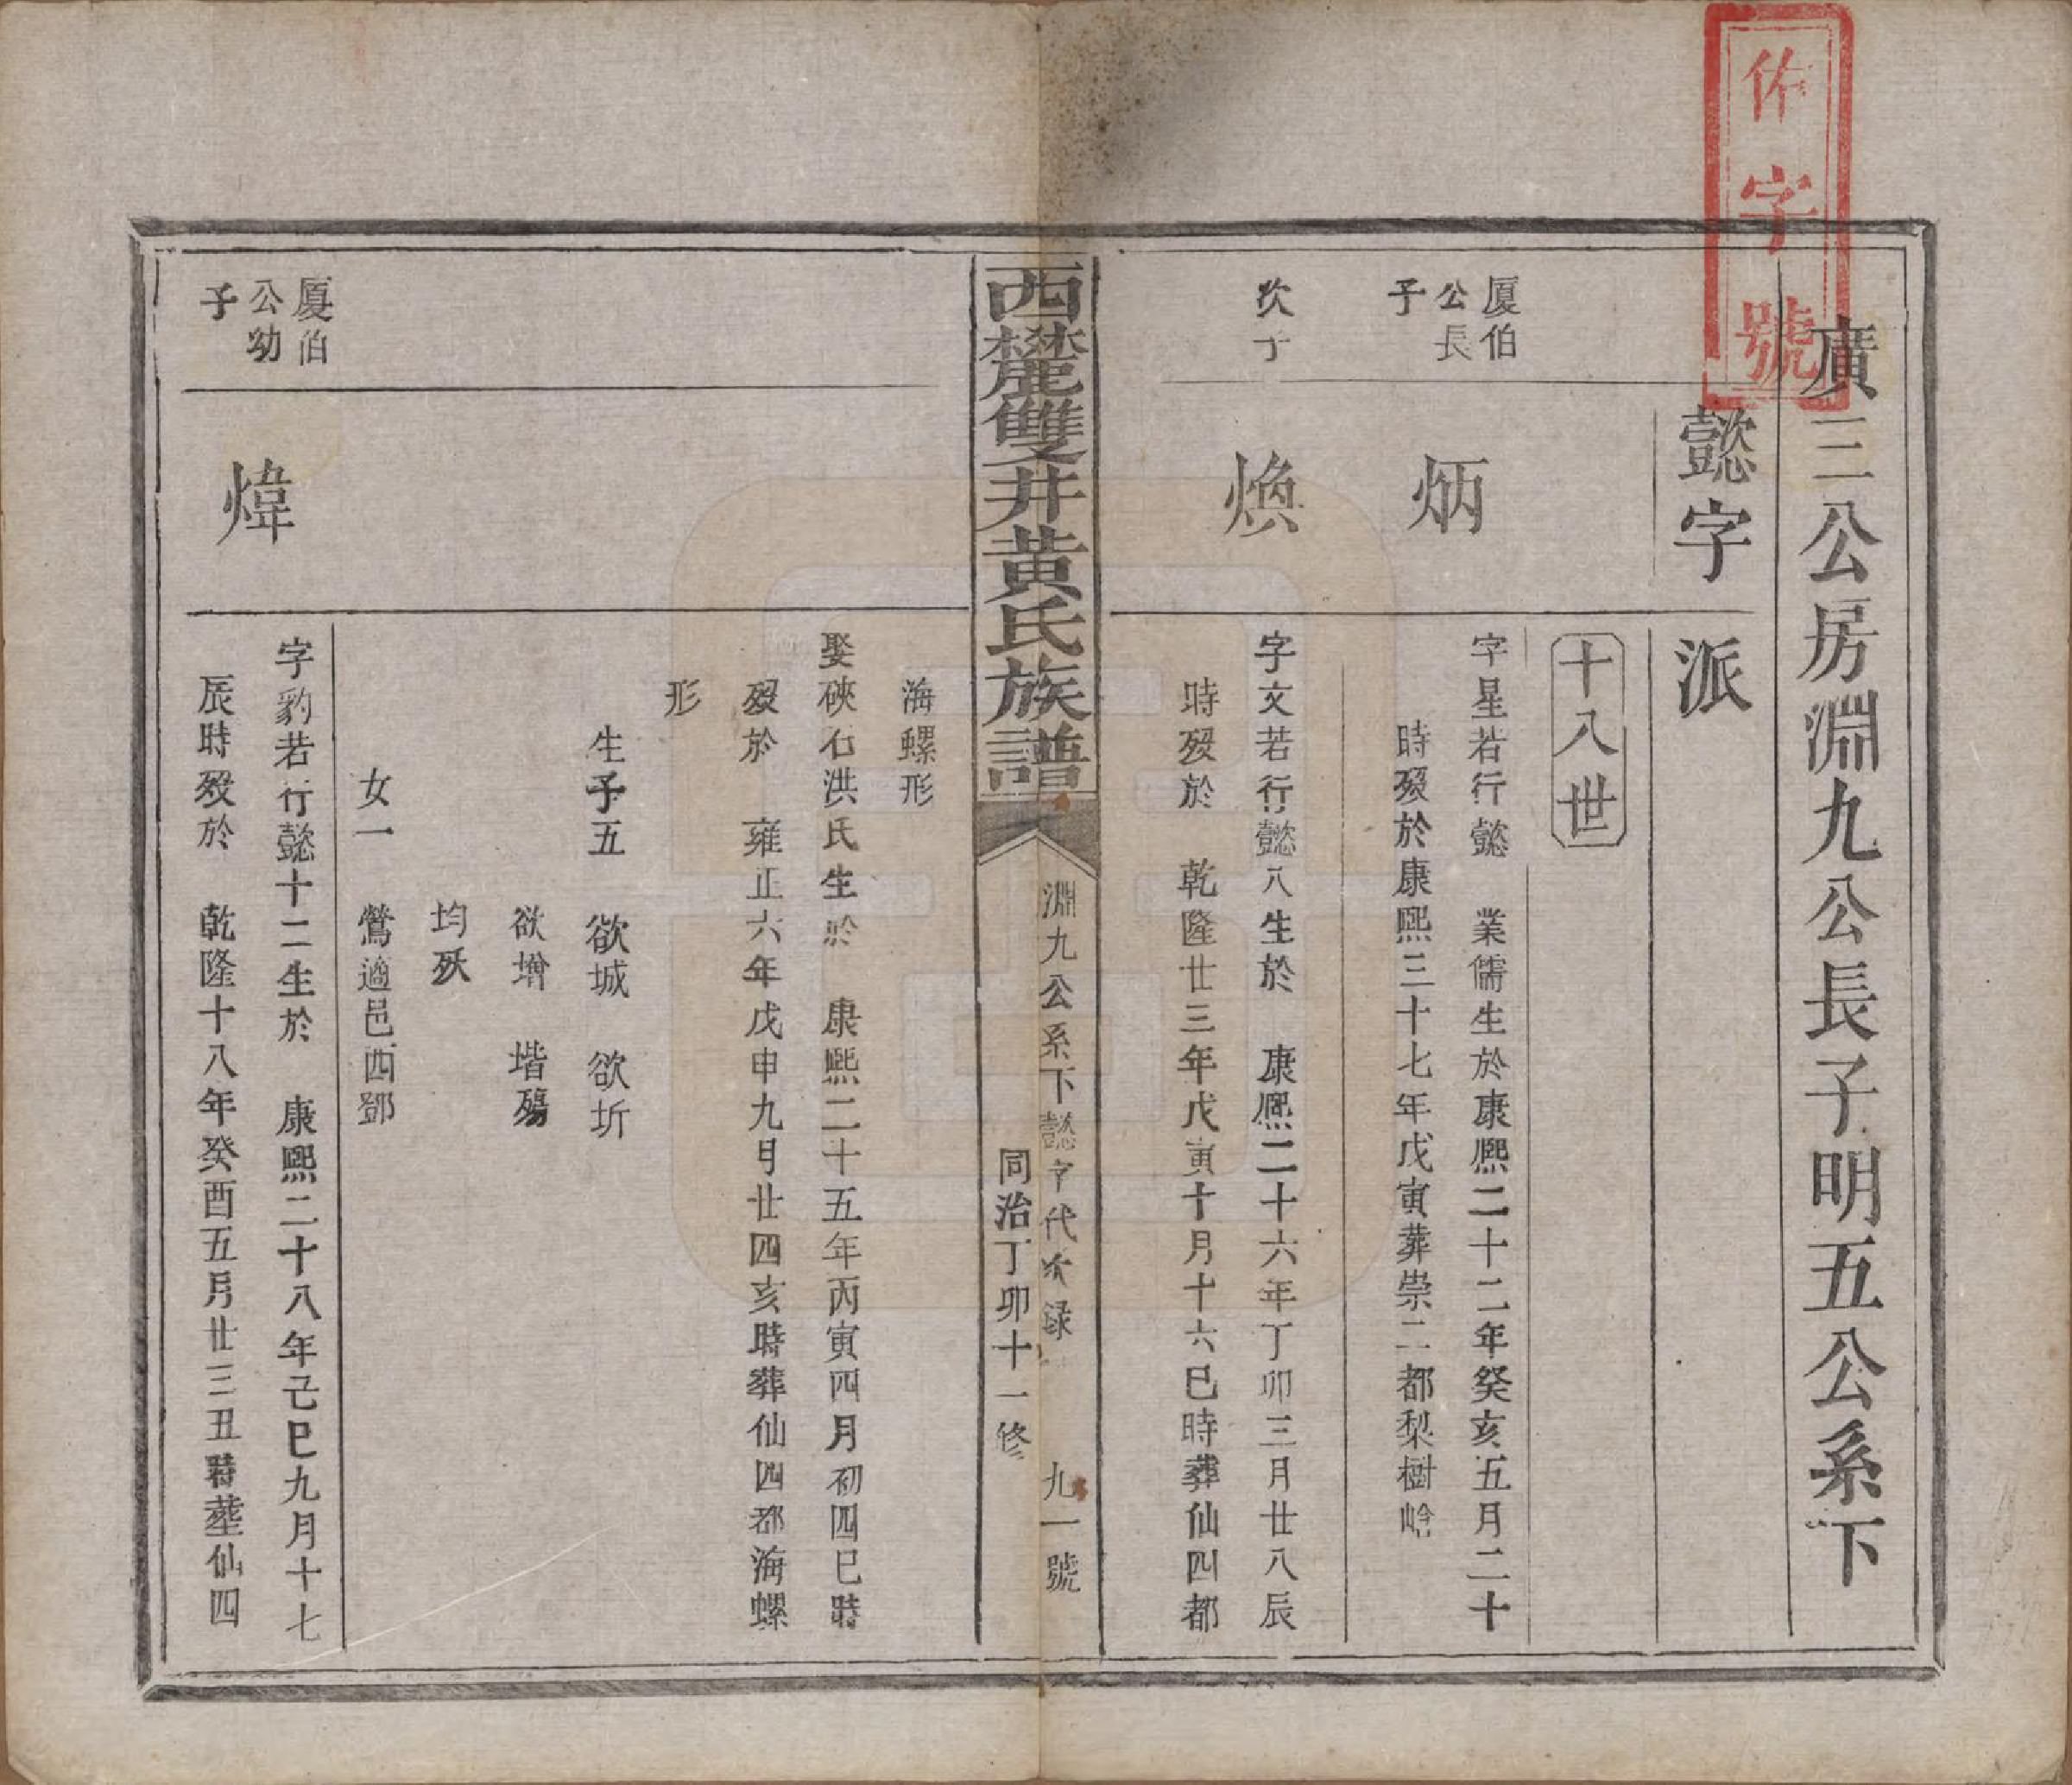 佑字號
廣三公房淵九公長子明五公系下
懿字派
十八世
厦伯
公長
子
炳
字星若行懿　業儒生於康熙二十二年癸亥五月二十
時殁於康熙三十七年戊寅葬崇二都梨樹峆
次子
煥
字文若行懿八生於　康熙二十六年丁卯三月廿八辰
時殁於　乾隆廿三年戊寅十月十六巳時葬仙四都
西麓雙井黃氏族譜
淵九公系下懿字代次录　九一號
同治丁卯十一修
海螺形
娶硤石洪氏生於　康熙二十五年丙寅四月初四巳時
殁於　雍正六年戊申九月廿四亥時葬仙四都海螺
形
生子五　欲城　欲圻
欲增　堦殤
均殀
女一　鶯適邑西鄧
厦伯
公幼
子
煒
字豹若行懿十二生於　康熙二十八年己巳九月十七
辰時殁於　乾隆十八年癸酉五月廿三丑時塟仙四